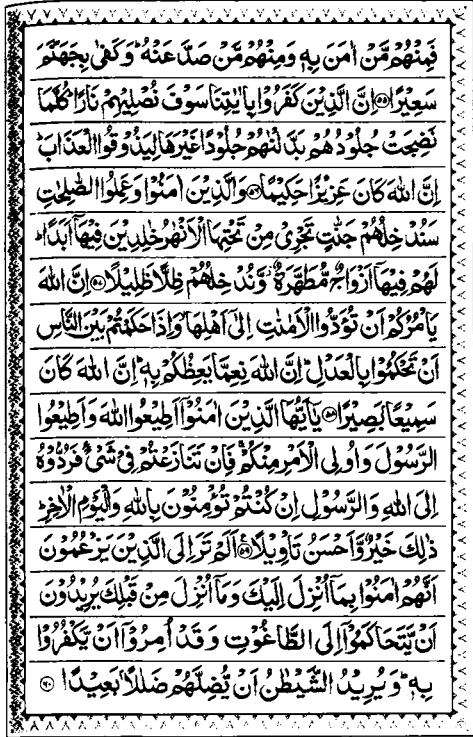 فَمِنْهُمْ مَّنْ اٰمَنَ بِهٖ وَمِنْهُمْ مَّنْ صَدَّ عَنْهُ ؕ وَكَفٰی بِجَهَنَّمَ
سَعِیْرًا ﴿۵۵﴾ اِنَّ الَّذِیْنَ كَفَرُوْا بِاٰیٰتِنَا سَوْفَ نُصْلِیْهِمْ نَارًا ؕ كُلَّمَا
نَضِجَتْ جُلُوْدُهُمْ بَدَّلْنٰهُمْ جُلُوْدًا غَیْرَهَا لِیَذُوْقُوا الْعَذَابَ ؕ
اِنَّ اللّٰهَ كَانَ عَزِیْزًا حَكِیْمًا ﴿۵۶﴾ وَالَّذِیْنَ اٰمَنُوْا وَعَمِلُوا الصّٰلِحٰتِ
سَنُدْخِلُهُمْ جَنّٰتٍ تَجْرِیْ مِنْ تَحْتِهَا الْاَنْهٰرُ خٰلِدِیْنَ فِیْهَاۤ اَبَدًا ؕ
لَهُمْ فِیْهَاۤ اَزْوَاجٌ مُّطَهَّرَةٌ ؗ وَّنُدْخِلُهُمْ ظِلًّا ظَلِیْلًا ﴿۵۷﴾ اِنَّ اللّٰهَ
یَاْمُرُكُمْ اَنْ تُؤَدُّوا الْاَمٰنٰتِ اِلٰۤی اَهْلِهَا ۙ وَاِذَا حَكَمْتُمْ بَیْنَ النَّاسِ
اَنْ تَحْكُمُوْا بِالْعَدْلِ ؕ اِنَّ اللّٰهَ نِعِمَّا یَعِظُكُمْ بِهٖ ؕ اِنَّ اللّٰهَ كَانَ
سَمِیْعًۢا بَصِیْرًا ﴿۵۸﴾ یٰۤاَیُّهَا الَّذِیْنَ اٰمَنُوْۤا اَطِیْعُوا اللّٰهَ وَاَطِیْعُوا
الرَّسُوْلَ وَاُولِی الْاَمْرِ مِنْكُمْ ۚ فَاِنْ تَنَازَعْتُمْ فِیْ شَیْءٍ فَرُدُّوْهُ
اِلَی اللّٰهِ وَالرَّسُوْلِ اِنْ كُنْتُمْ تُؤْمِنُوْنَ بِاللّٰهِ وَالْیَوْمِ الْاٰخِرِ ؕ
ذٰلِكَ خَیْرٌ وَّاَحْسَنُ تَاْوِیْلًا ﴿۵۹﴾ اَلَمْ تَرَ اِلَی الَّذِیْنَ یَزْعُمُوْنَ
اَنَّهُمْ اٰمَنُوْا بِمَاۤ اُنْزِلَ اِلَیْكَ وَمَاۤ اُنْزِلَ مِنْ قَبْلِكَ یُرِیْدُوْنَ
اَنْ یَّتَحَاكَمُوْۤا اِلَی الطَّاغُوْتِ وَقَدْ اُمِرُوْۤا اَنْ یَّكْفُرُوْا
بِهٖ ؕ وَیُرِیْدُ الشَّیْطٰنُ اَنْ یُّضِلَّهُمْ ضَلٰلًۢا بَعِیْدًا ﴿۶۰﴾